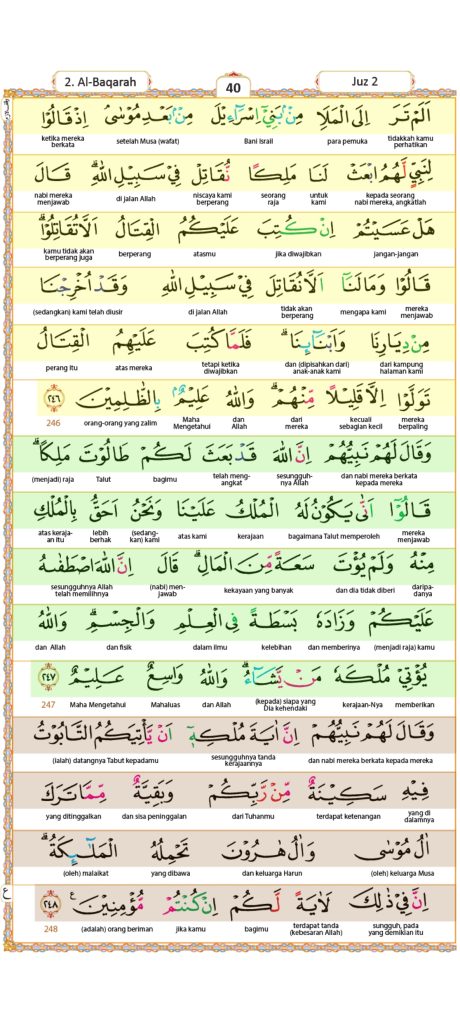 2. Al-Baqarah
40
Juz 2
اَلَمْ تَرَ اِلَى الْمَلَاِ مِنْۢ بَنِيْٓ اِسْرَاۤءِيْلَ مِنْۢ بَعْدِ مُوْسٰىۘ اِذْ قَالُوْا
tidakkah kamu perhatikan para pemuka Bani Israil setelah Musa (wafat) ketika mereka berkata
لِنَبِيٍّ لَّهُمُ ابْعَثْ لَنَا مَلِكًا نُّقَاتِلْ فِيْ سَبِيْلِ اللّٰهِۗ قَالَ
kepada seorang nabi mereka, angkatlah untuk kami seorang raja niscaya kami berperang di jalan Allah nabi mereka menjawab
هَلْ عَسَيْتُمْ اِنْ كُتِبَ عَلَيْكُمُ الْقِتَالُ اَلَّا تُقَاتِلُوْاۗ
jangan-jangan jika diwajibkan atasmu berperang kamu tidak akan berperang juga
قَالُوْا وَمَا لَنَآ اَلَّا نُقَاتِلَ فِيْ سَبِيْلِ اللّٰهِ وَقَدْ اُخْرِجْنَا
mereka menjawab mengapa kami tidak akan berperang di jalan Allah (sedangkan) kami telah diusir
مِنْ دِيَارِنَا وَاَبْنَاۤىِٕنَاۗ فَلَمَّا كُتِبَ عَلَيْهِمُ الْقِتَالُ
dari kampung halaman kami dan (dipisahkan dari) anak-anak kami tetapi ketika diwajibkan atas mereka perang itu
تَوَلَّوْا اِلَّا قَلِيْلًا مِّنْهُمْۗ وَاللّٰهُ عَلِيْمٌۢ بِالظّٰلِمِيْنَ ٢٤٦
mereka berpaling kecuali sebagian kecil dari mereka dan Allah Maha Mengetahui orang-orang yang zalim 246
وَقَالَ لَهُمْ نَبِيُّهُمْ اِنَّ اللّٰهَ قَدْ بَعَثَ لَكُمْ طَالُوْتَ مَلِكًاۗ
dan nabi mereka berkata kepada mereka sesungguh-nya Allah telah meng-angkat bagimu Talut (menjadi) raja
قَالُوْٓا اَنّٰى يَكُوْنُ لَهُ الْمُلْكُ عَلَيْنَا وَنَحْنُ اَحَقُّ بِالْمُلْكِ
mereka menjawab bagaimana Talut memperoleh kerajaan atas kami (sedang-kan) kami lebih berhak atas keraja-an itu
مِنْهُ وَلَمْ يُؤْتَ سَعَةً مِّنَ الْمَالِۗ قَالَ اِنَّ اللّٰهَ اصْطَفٰىهُ
daripa-danya dan dia tidak diberi kekayaan yang banyak (nabi) men-jawab sesungguhnya Allah telah memilihnya
عَلَيْكُمْ وَزَادَهٗ بَسْطَةً فِى الْعِلْمِ وَالْجِسْمِۗ وَاللّٰهُ
(menjadi raja) kamu dan memberinya kelebihan dalam ilmu dan fisik dan Allah
يُؤْتِيْ مُلْكَهٗ مَنْ يَّشَاۤءُۗ وَاللّٰهُ وَاسِعٌ عَلِيْمٌ ٢٤٧
memberikan kerajaan-Nya (kepada) siapa yang Dia kehendaki dan Allah Mahaluas Maha Mengetahui 247
وَقَالَ لَهُمْ نَبِيُّهُمْ اِنَّ اٰيَةَ مُلْكِهٖٓ اَنْ يَّأْتِيَكُمُ التَّابُوْتُ
dan nabi mereka berkata kepada mereka sesungguhnya tanda kerajaannya (ialah) datangnya Tabut kepadamu
فِيْهِ سَكِيْنَةٌ مِّنْ رَّبِّكُمْ وَبَقِيَّةٌ مِّمَّا تَرَكَ
yang di dalamnya terdapat ketenangan dari Tuhanmu dan sisa peninggalan yang ditinggalkan
اٰلُ مُوْسٰى وَاٰلُ هٰرُوْنَ تَحْمِلُهُ الْمَلٰۤىِٕكَةُۗ
(oleh) keluarga Musa dan keluarga Harun yang dibawa (oleh) malaikat
اِنَّ فِيْ ذٰلِكَ لَاٰيَةً لَّكُمْ اِنْ كُنْتُمْ مُّؤْمِنِيْنَ ࣖ ٢٤٨
sungguh, pada yang demikian itu terdapat tanda (kebesaran Allah) bagimu jika kamu (adalah) orang beriman 248
ع